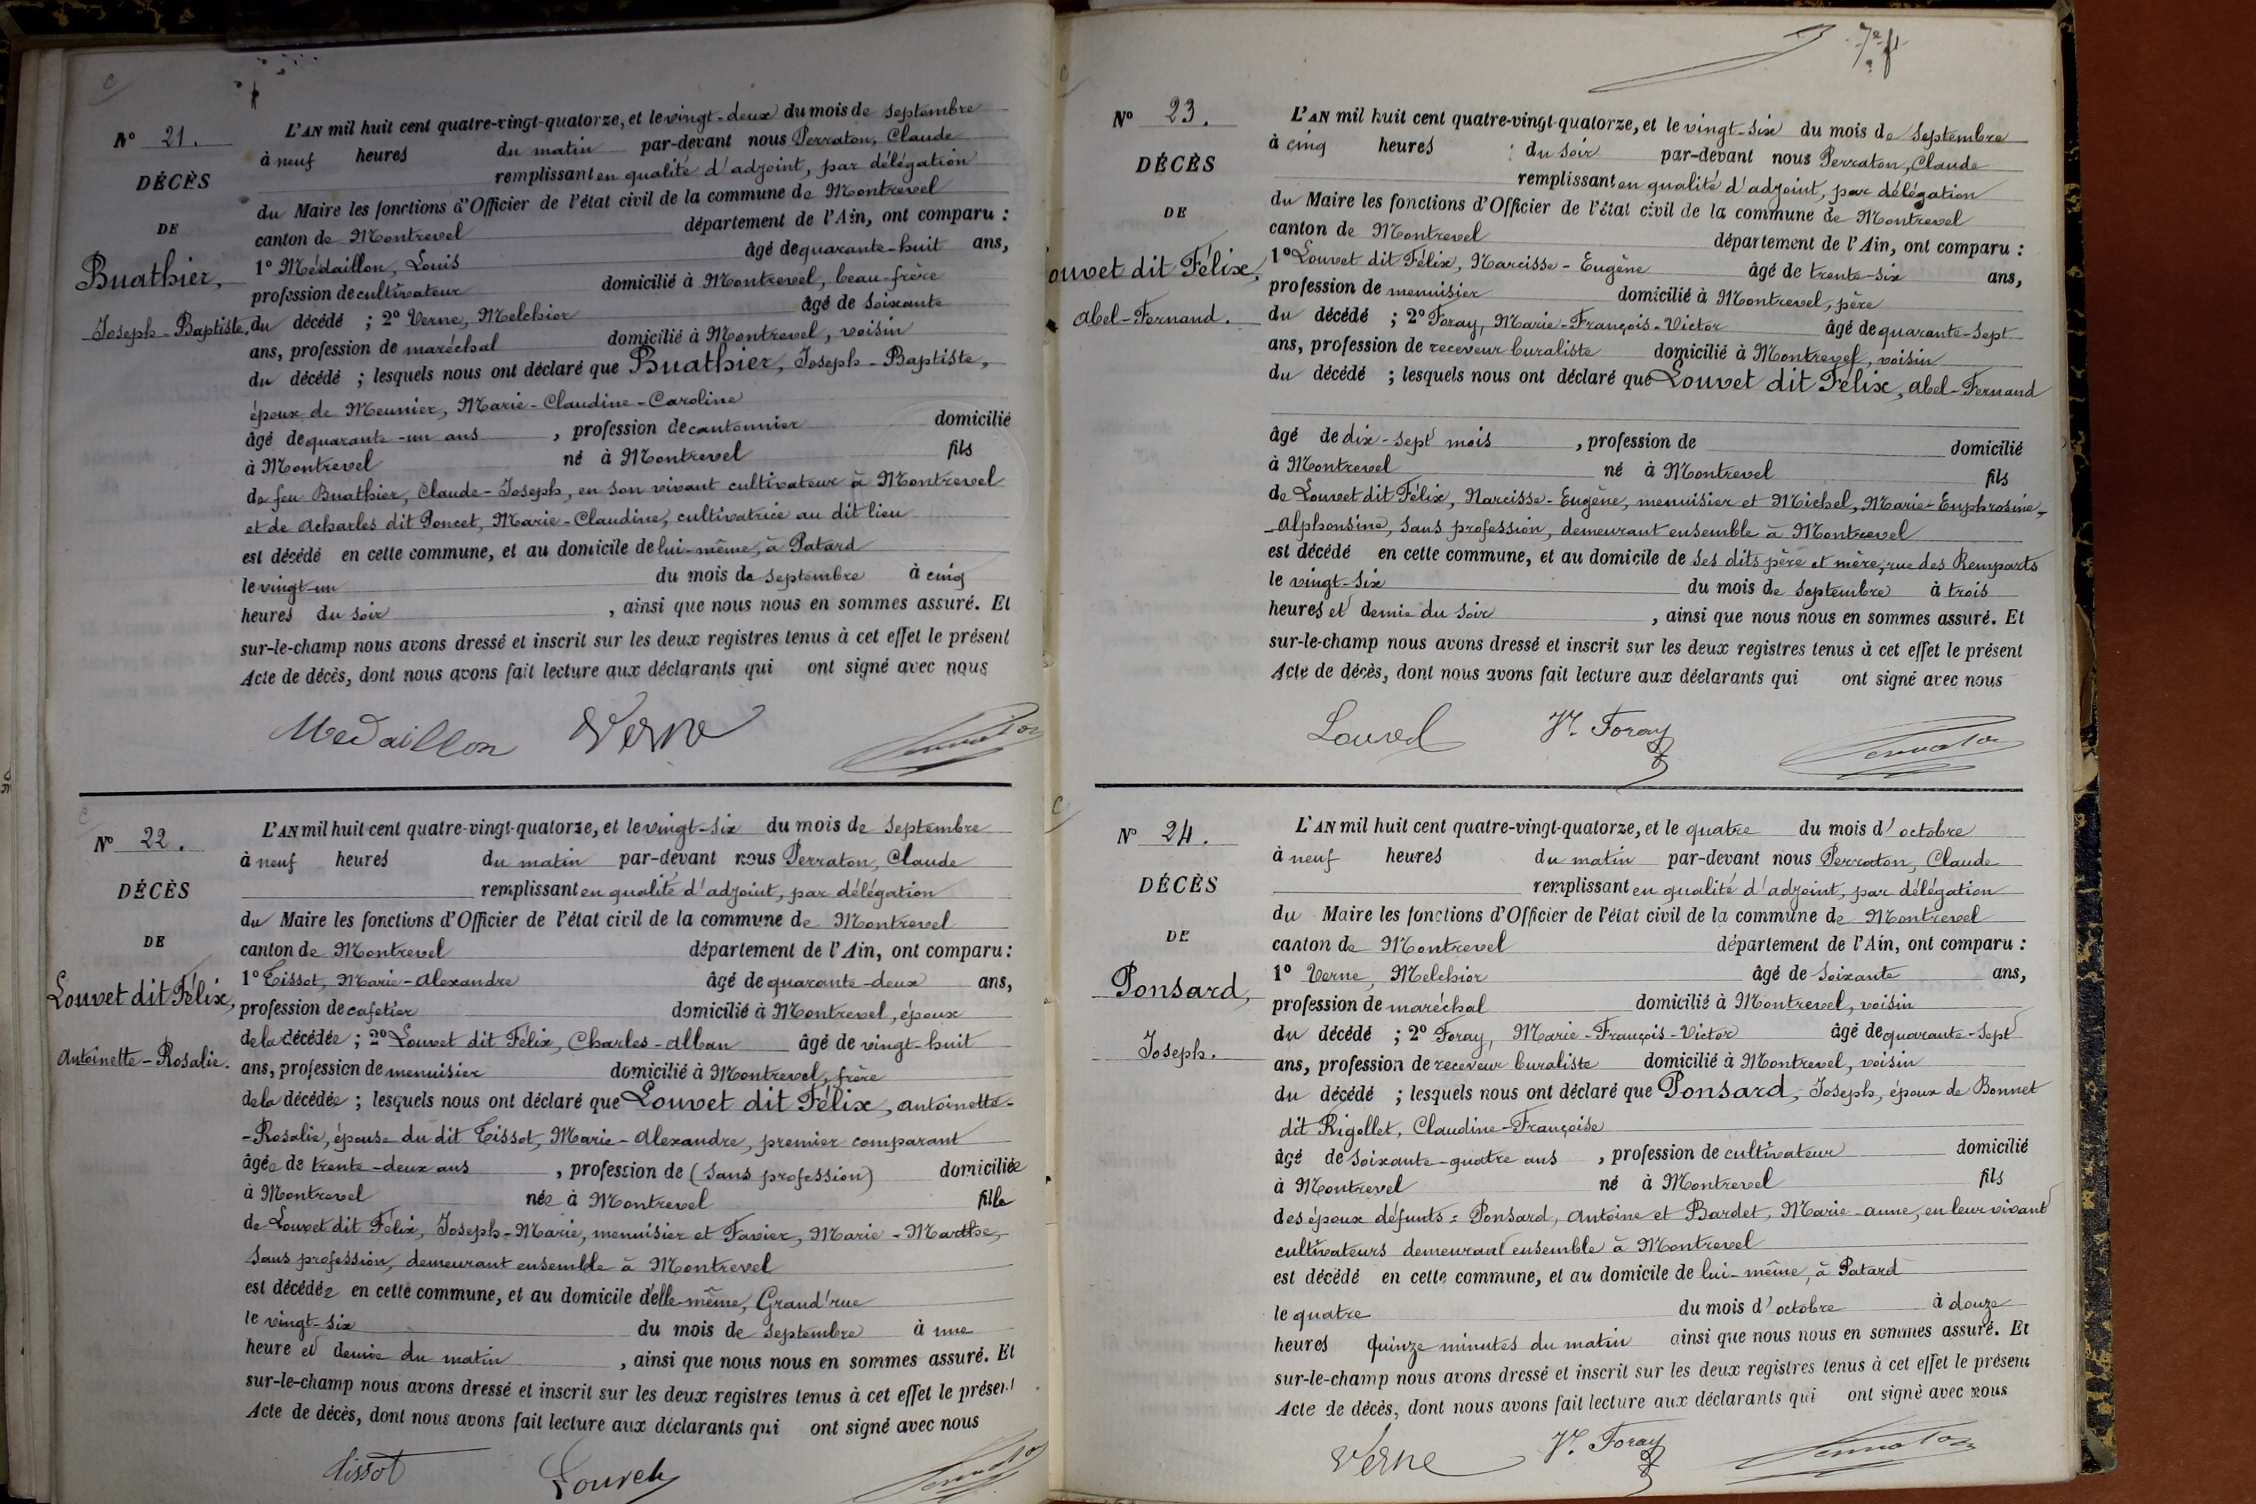 N° 21.
DÉCÈS
DE
Buathier,
Joseph-Baptiste.
L'AN mil huit cent quatre-vingt-quatorze, et le vingt-deux du mois de septembre
à neuf heures du matin par-devant nous Perraton, Claude
remplissant en qualité d'adjoint, par délégation
du Maire les fonctions d'Officier de l'état civil de la commune de Montrevel
canton de Montrevel département de l'Ain, ont comparu :
1° Médaillon, Louis âgé de quarante-huit ans,
profession de cultivateur domicilié à Montrevel, beau-frère
du décédé ; 2° Verne, Melchior âgé de soixante
ans, profession de maréchal domicilié à Montrevel, voisin
du décédé ; lesquels nous ont déclaré que Buathier, Joseph-Baptiste,
époux de Meunier, Marie-Claudine-Caroline
âgé de quarante-un ans , profession de cantonnier domicilié
à Montrevel né à Montrevel fils
de feu Buathier, Claude-Joseph, en son vivant cultivateur à Montrevel
et de Acharles dit Poncet, Marie-Claudine, cultivatrice au dit lieu
est décédé en cette commune, et au domicile de lui-même, à Patard
le vingt-un du mois de septembre à cinq
heures du soir , ainsi que nous nous en sommes assuré. Et
sur-le-champ nous avons dressé et inscrit sur les deux registres tenus à cet effet le présent
Acte de décès, dont nous avons fait lecture aux déclarants qui ont signé avec nous
Medaillon Verne Perraton
N° 22.
DÉCÈS
DE
Louvet dit Félix,
Antoinette-Rosalie.
L'AN mil huit cent quatre-vingt-quatorze, et le vingt-six du mois de septembre
à neuf heures du matin par-devant nous Perraton, Claude
remplissant en qualité d'adjoint, par délégation
du Maire les fonctions d'Officier de l'état civil de la commune de Montrevel
canton de Montrevel département de l'Ain, ont comparu :
1° Tissot, Marie-Alexandre âgé de quarante-deux ans,
profession de cafetier domicilié à Montrevel, époux
de la décédée ; 2° Louvet dit Félix, Charles-Alban âgé de vingt-huit
ans, profession de menuisier domicilié à Montrevel, frère
de la décédée ; lesquels nous ont déclaré que Louvet dit Félix, Antoinette-
-Rosalie, épouse du dit Tissot, Marie-Alexandre, premier comparant
âgée de trente-deux ans , profession de (sans profession) domiciliée
à Montrevel née à Montrevel fille
de Louvet dit Félix, Joseph-Marie, menuisier et Favier, Marie-Marthe,
sans profession, demeurant ensemble à Montrevel
est décédée en cette commune, et au domicile d'elle-même, Grand'rue
le vingt-six du mois de septembre à une
heure et demie du matin , ainsi que nous nous en sommes assuré. Et
sur-le-champ nous avons dressé et inscrit sur les deux registres tenus à cet effet le présent
Acte de décès, dont nous avons fait lecture aux déclarants qui ont signé avec nous
Tissot Louvet Perraton
7e ft
N° 23.
DÉCÈS
DE
ouvet dit Félix,
Abel-Fernand.
L'AN mil huit cent quatre-vingt-quatorze, et le vingt-six du mois de septembre
à cinq heures du soir par-devant nous Perraton, Claude
remplissant en qualité d'adjoint, par délégation
du Maire les fonctions d'Officier de l'état civil de la commune de Montrevel
canton de Montrevel département de l'Ain, ont comparu :
1° Louvet dit Félix, Narcisse-Eugène âgé de trente-six ans,
profession de menuisier domicilié à Montrevel, père
du décédé ; 2° Foray, Marie-François-Victor âgé de quarante-sept
ans, profession de receveur buraliste domicilié à Montrevel, voisin
du décédé ; lesquels nous ont déclaré que Louvet dit Félix, Abel-Fernand
âgé de dix-sept mois , profession de domicilié
à Montrevel né à Montrevel fils
de Louvet dit Félix, Narcisse-Eugène, menuisier et Michel, Marie-Euphrosine-
-Alphonsine, sans profession, demeurant ensemble à Montrevel
est décédé en cette commune, et au domicile de ses dits père et mère, rue des Remparts
le vingt-six du mois de septembre à trois
heures et demie du soir , ainsi que nous nous en sommes assuré. Et
sur-le-champ nous avons dressé et inscrit sur les deux registres tenus à cet effet le présent
Acte de décès, dont nous avons fait lecture aux déclarants qui ont signé avec nous
Louvet Vr. Foray Perraton
N° 24.
DÉCÈS
DE
Ponsard,
Joseph.
L'AN mil huit cent quatre-vingt-quatorze, et le quatre du mois d'octobre
à neuf heures du matin par-devant nous Perraton, Claude
remplissant en qualité d'adjoint, par délégation
du Maire les fonctions d'Officier de l'état civil de la commune de Montrevel
canton de Montrevel département de l'Ain, ont comparu :
1° Verne, Melchior âgé de soixante ans,
profession de maréchal domicilié à Montrevel, voisin
du décédé ; 2° Foray, Marie-François-Victor âgé de quarante-sept
ans, profession de receveur buraliste domicilié à Montrevel, voisin
du décédé ; lesquels nous ont déclaré que Ponsard, Joseph, époux de Bonnet
dit Rigollet, Claudine-Françoise
âgé de soixante-quatre ans , profession de cultivateur domicilié
à Montrevel né à Montrevel fils
des époux défunts : Ponsard, Antoine et Bardet, Marie-Anne, en leur vivant
cultivateurs demeurant ensemble à Montrevel
est décédé en cette commune, et au domicile de lui-même, à Patard
le quatre du mois d'octobre à douze
heures quinze minutes du matin ainsi que nous nous en sommes assuré. Et
sur-le-champ nous avons dressé et inscrit sur les deux registres tenus à cet effet le présent
Acte de décès, dont nous avons fait lecture aux déclarants qui ont signé avec nous
Verne Vr. Foray Perraton